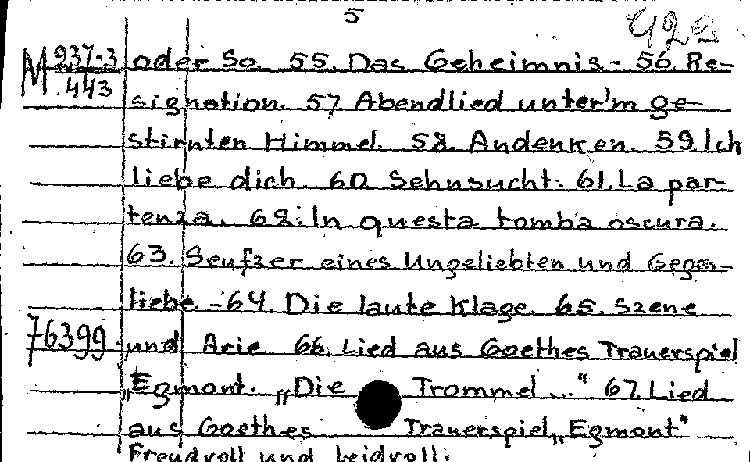 5
M 937-3 oder So. 55. Das Geheimnis - 56. Re-
443 signation. 57 Abendlied unter'm ge-
stirnten Himmel. 58. Andenken. 59. Ich
liebe dich. 60. Sehnsucht. 61. La par-
tenza. 62. In questa tomba oscura.
63. Seufzer eines Ungeliebten und Gegen-
liebe. - 64. Die laute Klage. 65. Szene
76399 und Arie 66. Lied aus Goethes Trauerspiel
„Egmont. „Die Trommel ..." 67. Lied
aus Goethes Trauerspiel „Egmont"
Freudvoll und leidvoll.